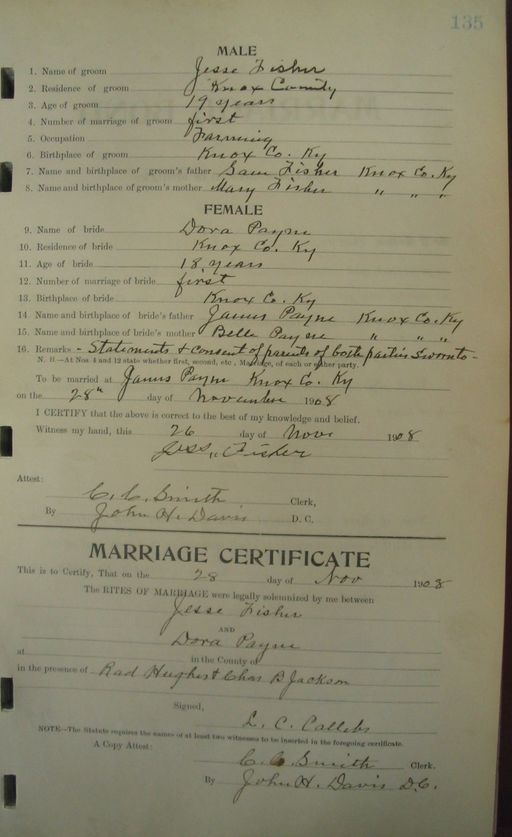 135
MALE
1. Name of groom Jesse Fisher
2. Residence of groom Knox County
3. Age of groom 19 years
4. Number of marriage of groom first
5. Occupation Farming
6. Birthplace of groom Knox Co. Ky
7. Name and birthplace of groom's father Sam Fisher Knox Co. Ky
8. Name and birthplace of groom's mother Mary Fisher " " "
FEMALE
9. Name of bride Dora Payne
10. Residence of bride Knox Co. Ky
11. Age of bride 18 years
12. Number of marriage of bride first
13. Birthplace of bride Knox Co. Ky
14 Name and birthplace of bride's father James Payne Knox Co. Ky
15. Name and birthplace of bride's mother Belle Payne " " "
16. Remarks - Statements & consent of parents of both parties Sworn to -
N. B.—At Nos. 4 and 12 state whether first, second, etc., Marriage, of each or either party.
To be married at James Payne Knox Co. Ky
on the 28" day of November 1908
I CERTIFY that the above is correct to the best of my knowledge and belief.
Witness my hand, this 26 day of Nov 1908
Jess Fisher
Attest:
C. C. Smith Clerk,
By John H. Davis D. C.
MARRIAGE CERTIFICATE
This is to Certify, That on the 28 day of Nov 1908
The RITES OF MARRIAGE were legally solemnized by me between
Jesse Fisher
AND
Dora Payne
at in the County of
in the presence of Rad Hughes & Chas B Jackson
Signed,
L. C. Callebs
NOTE—The Statute requires the names of at least two witnesses to be inserted in the foregoing certificate.
A Copy Attest:
C. C. Smith Clerk.
By John H. Davis D.C.